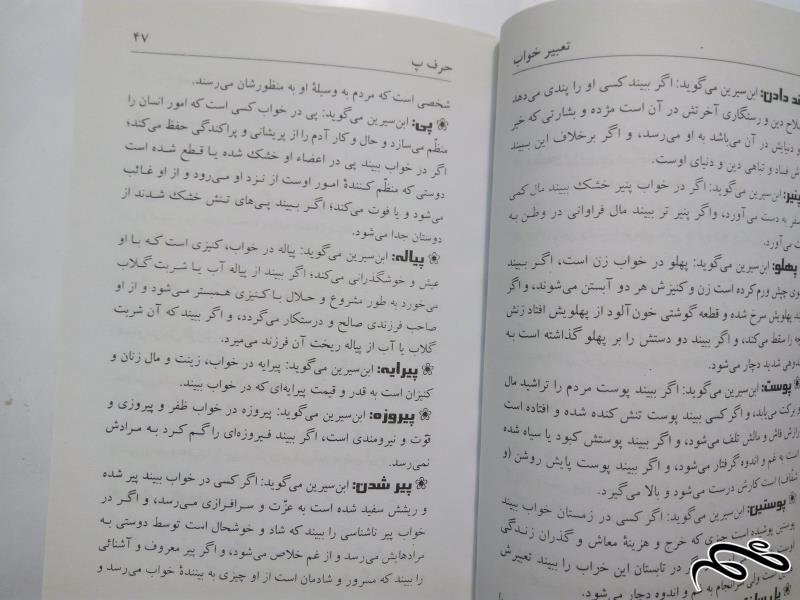 تعبیر خواب
ند دادن: ابن‌سیرین می‌گوید: اگر ببیند کسی او را پندی می‌دهد
لاح دین و رستگاری آخرتش در آن است مژده و بشارتی که خیر
و دنیایش در آن می‌باشد به او می‌رسد، و اگر برخلاف این ببیند
ش فساد و تباهی دین و دنیای اوست.
پنیر: ابن‌سیرین می‌گوید: اگر در خواب پنیر خشک ببیند مال کمی
سفر به دست می‌آورد، واگر پنیر تر ببیند مال فراوانی در وطن به
ت می‌آورد.
پهلو: ابن‌سیرین می‌گوید: پهلو در خواب زن است، اگر ببیند
وی چپش ورم کرده است زن و کنیزش هر دو آبستن می‌شوند، و اگر
ند پهلویش سرخ شده و قطعه گوشتی خون‌آلود از پهلویش افتاد زنش
چه را سقط می‌کند، و اگر ببیند دو دستش را بر پهلو گذاشته است به
دوهی شدید دچار می‌شود.
پوست: ابن‌سیرین می‌گوید: اگر ببیند پوست مردم را تراشید مال
و برکت می‌یابد، و اگر کسی ببیند پوست تنش کنده شده و افتاده است
رازش فاش و مالش تلف می‌شود، و اگر ببیند پوستش کبود یا سیاه شده
است به غم و اندوه گرفتار می‌شود، و اگر ببیند پوست پایش روشن (و
شفّاف) است کارش درست می‌شود و بالا می‌گیرد.
پوستین: ابن‌سیرین می‌گوید: اگر کسی در زمستان خواب ببیند
پوستین پوشیده است چیزی که خرج و هزینهٔ معاش و گذران زندگی
اوست در تابستان این خراب را ببیند تعبیرش
ولی سرانجام به غم و اندوه دچار می‌شود.
حرف پ
۴۷
شخصی است که مردم به وسیلهٔ او به منظورشان می‌رسند.
پی: ابن‌سیرین می‌گوید: پی در خواب کسی است که امور انسان را
منظّم می‌سازد و حال و کار آدم را از پریشانی و پراکندگی حفظ می‌کند؛
اگر در خواب ببیند پی در اعضاء او خشک شده یا قطع شده است
دوستی که منظّم کنندهٔ امور اوست از نزد او می‌رود و از او غائب
می‌شود و یا فوت می‌کند؛ اگر ببیند پی‌های تنش خشک شدند از
دوستان جدا می‌شود.
پیاله: ابن‌سیرین می‌گوید: پیاله در خواب، کنیزی است که با او
عیش و خوشگذرانی می‌کند؛ اگر ببیند از پیاله آب یا شربت گلاب
می‌خورد به طور مشروع و حلال با کنیزی همبستر می‌شود و از او
صاحب فرزندی صالح و درستکار می‌گردد، و اگر ببیند که آن شربت
گلاب یا آب از پیاله ریخت آن فرزند می‌میرد.
پیرایه: ابن‌سیرین می‌گوید: پیرایه در خواب، زینت و مال زنان و
کنیزان است به قدر و قیمت پیرایه‌ای که در خواب ببیند.
پیروزه: ابن‌سیرین می‌گوید: پیروزه در خواب ظفر و پیروزی و
قوّت و نیرومندی است، اگر ببیند فیروزه‌ای را گم کرد به مرادش
نمی‌رسد.
پیر شدن: ابن‌سیرین می‌گوید: اگر کسی در خواب ببیند پیر شده
و ریشش سفید شده است به عزّت و سرافرازی می‌رسد، و اگر در
خواب پیر ناشناسی را ببیند که شاد و خوشحال است توسط دوستی به
مرادهایش می‌رسد و از غم خلاص می‌شود، و اگر پیر معروف و آشنائی
را ببیند که مسرور و شادمان است از او چیزی به بینندهٔ خواب می‌رسد و